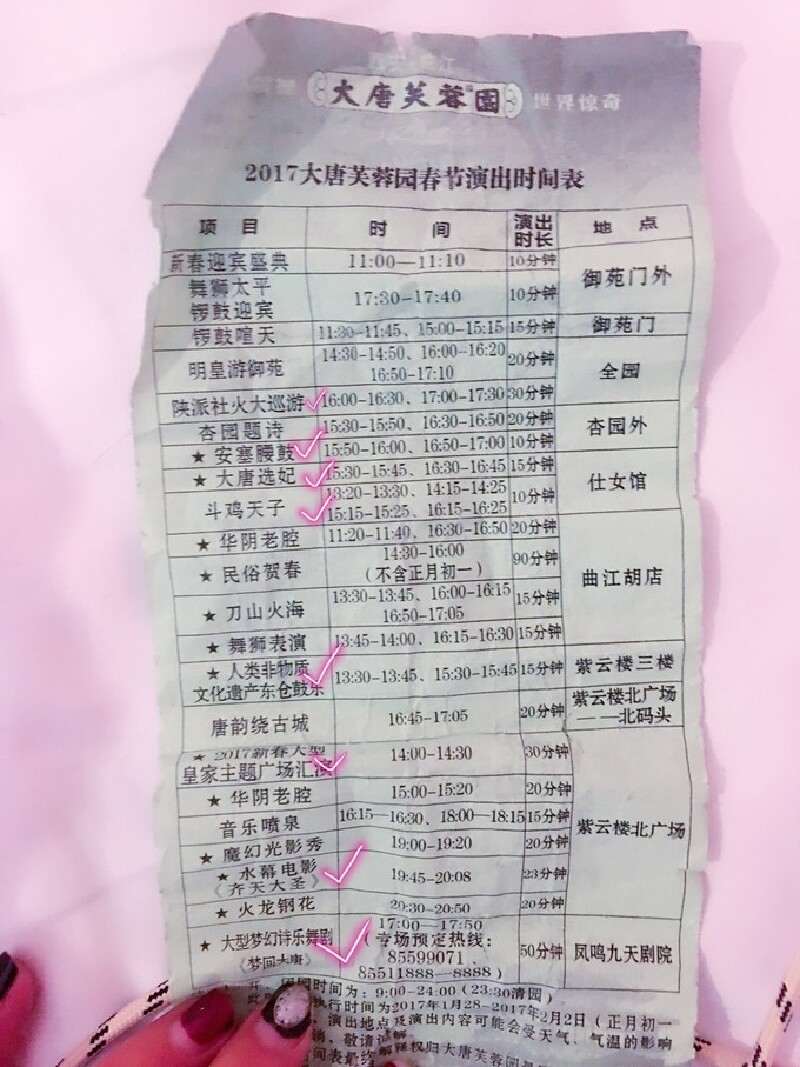 大唐芙蓉园 世界惊奇
2017大唐芙蓉园春节演出时间表
项目 时间 演出时长 地点
新春迎宾盛典 11:00—11:10 10分钟 御苑门外
舞狮太平
锣鼓迎宾 17:30-17:40 10分钟
锣鼓喧天 11:30-11:45、15:00-15:15 15分钟 御苑门
明皇游御苑 14:30-14:50、16:00-16:20
16:50-17:10 20分钟 全园
陕派社火大巡游 16:00-16:30、17:00-17:30 30分钟
杏园题诗 15:30-15:50、16:30-16:50 20分钟 杏园外
★ 安塞腰鼓 15:50-16:00、16:50-17:00 10分钟
★ 大唐选妃 15:30-15:45、16:30-16:45 15分钟 仕女馆
斗鸡天子 13:20-13:30、14:15-14:25
15:15-15:25、16:15-16:25 10分钟
★ 华阴老腔 11:20-11:40、16:30-16:50 20分钟 曲江胡店
★ 民俗贺春 14:30-16:00
(不含正月初一) 90分钟
★ 刀山火海 13:30-13:45、16:00-16:15
16:50-17:05 15分钟
★ 舞狮表演 13:45-14:00、16:15-16:30 15分钟
★ 人类非物质
文化遗产东仓鼓乐 13:30-13:45、15:30-15:45 15分钟 紫云楼三楼
唐韵绕古城 16:45-17:05 20分钟 紫云楼北广场
——北码头
★ 2017新春大型
皇家主题广场汇演 14:00-14:30 30分钟 紫云楼北广场
★ 华阴老腔 15:00-15:20 20分钟
音乐喷泉 16:15—16:30、18:00—18:15 15分钟
★ 魔幻光影秀 19:00-19:20 20分钟
★ 水幕电影
《齐天大圣》 19:45-20:08 23分钟
★ 火龙钢花 20:30-20:50 20分钟
★ 大型梦幻诗乐舞剧
《梦回大唐》 17:00—17:50
(专场预定热线:
85599071、
85511888—8888) 50分钟 凤鸣九天剧院
时间为:9:00-24:00(23:30清园)
执行时间为2017年1月28-2017年2月2日(正月初一
演出地点及演出内容可能会受天气、气温的影响
敬请谅解
间表最终解释权归大唐芙蓉园